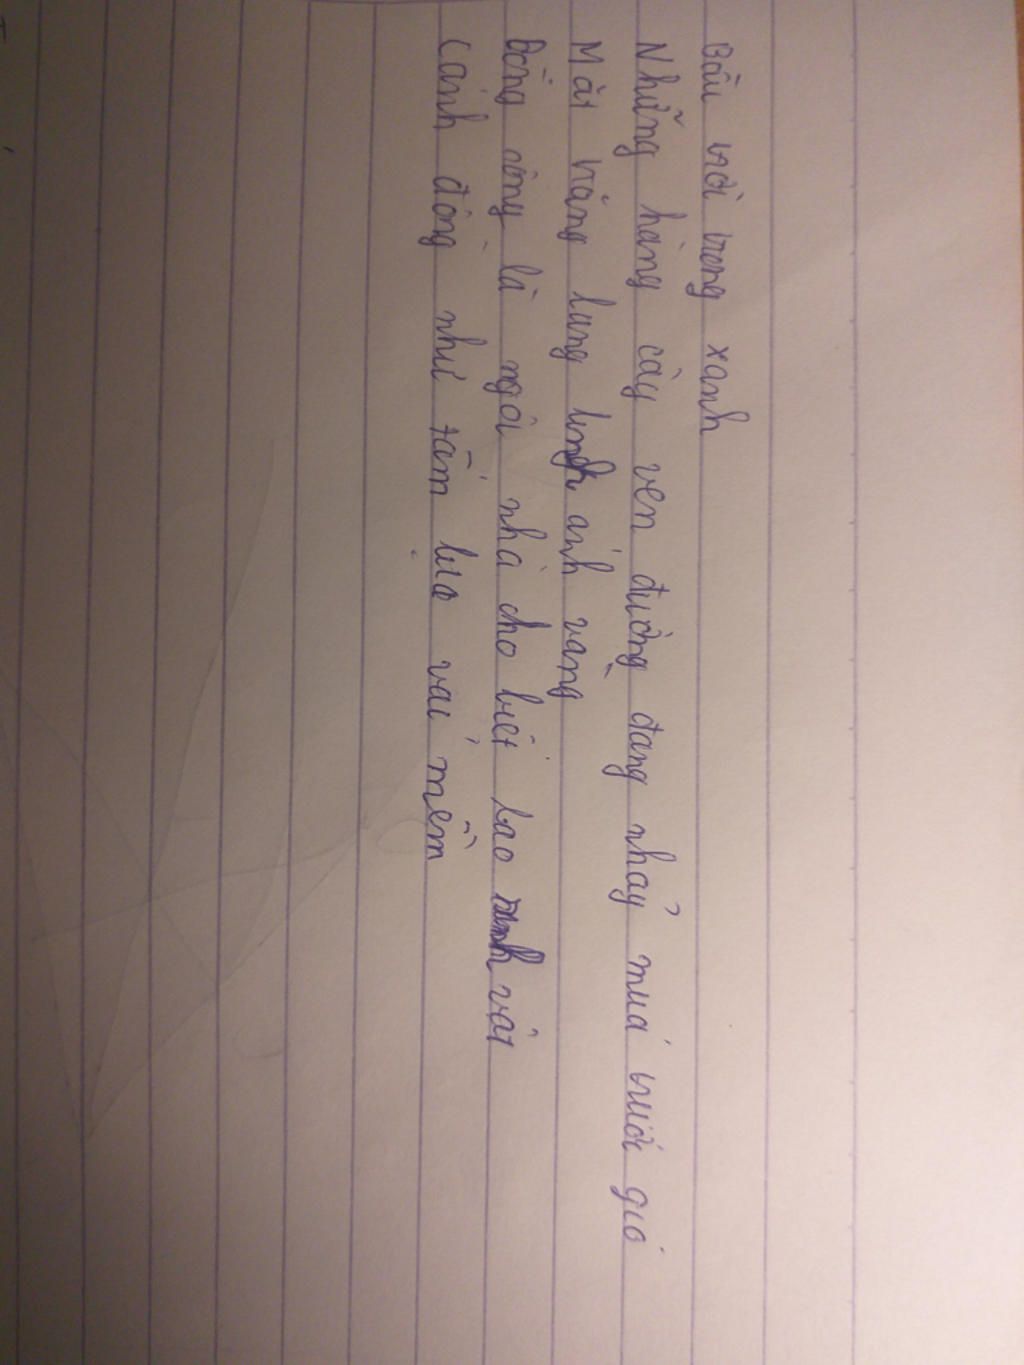 Bầu trời trong xanh
Những hàng cây ven đường đang nhảy múa trước gió
Mặt trăng lung linh ánh vàng
Dòng sông là ngôi nhà cho biết bao sinh vật
Cánh đồng như tấm lụa vải mềm